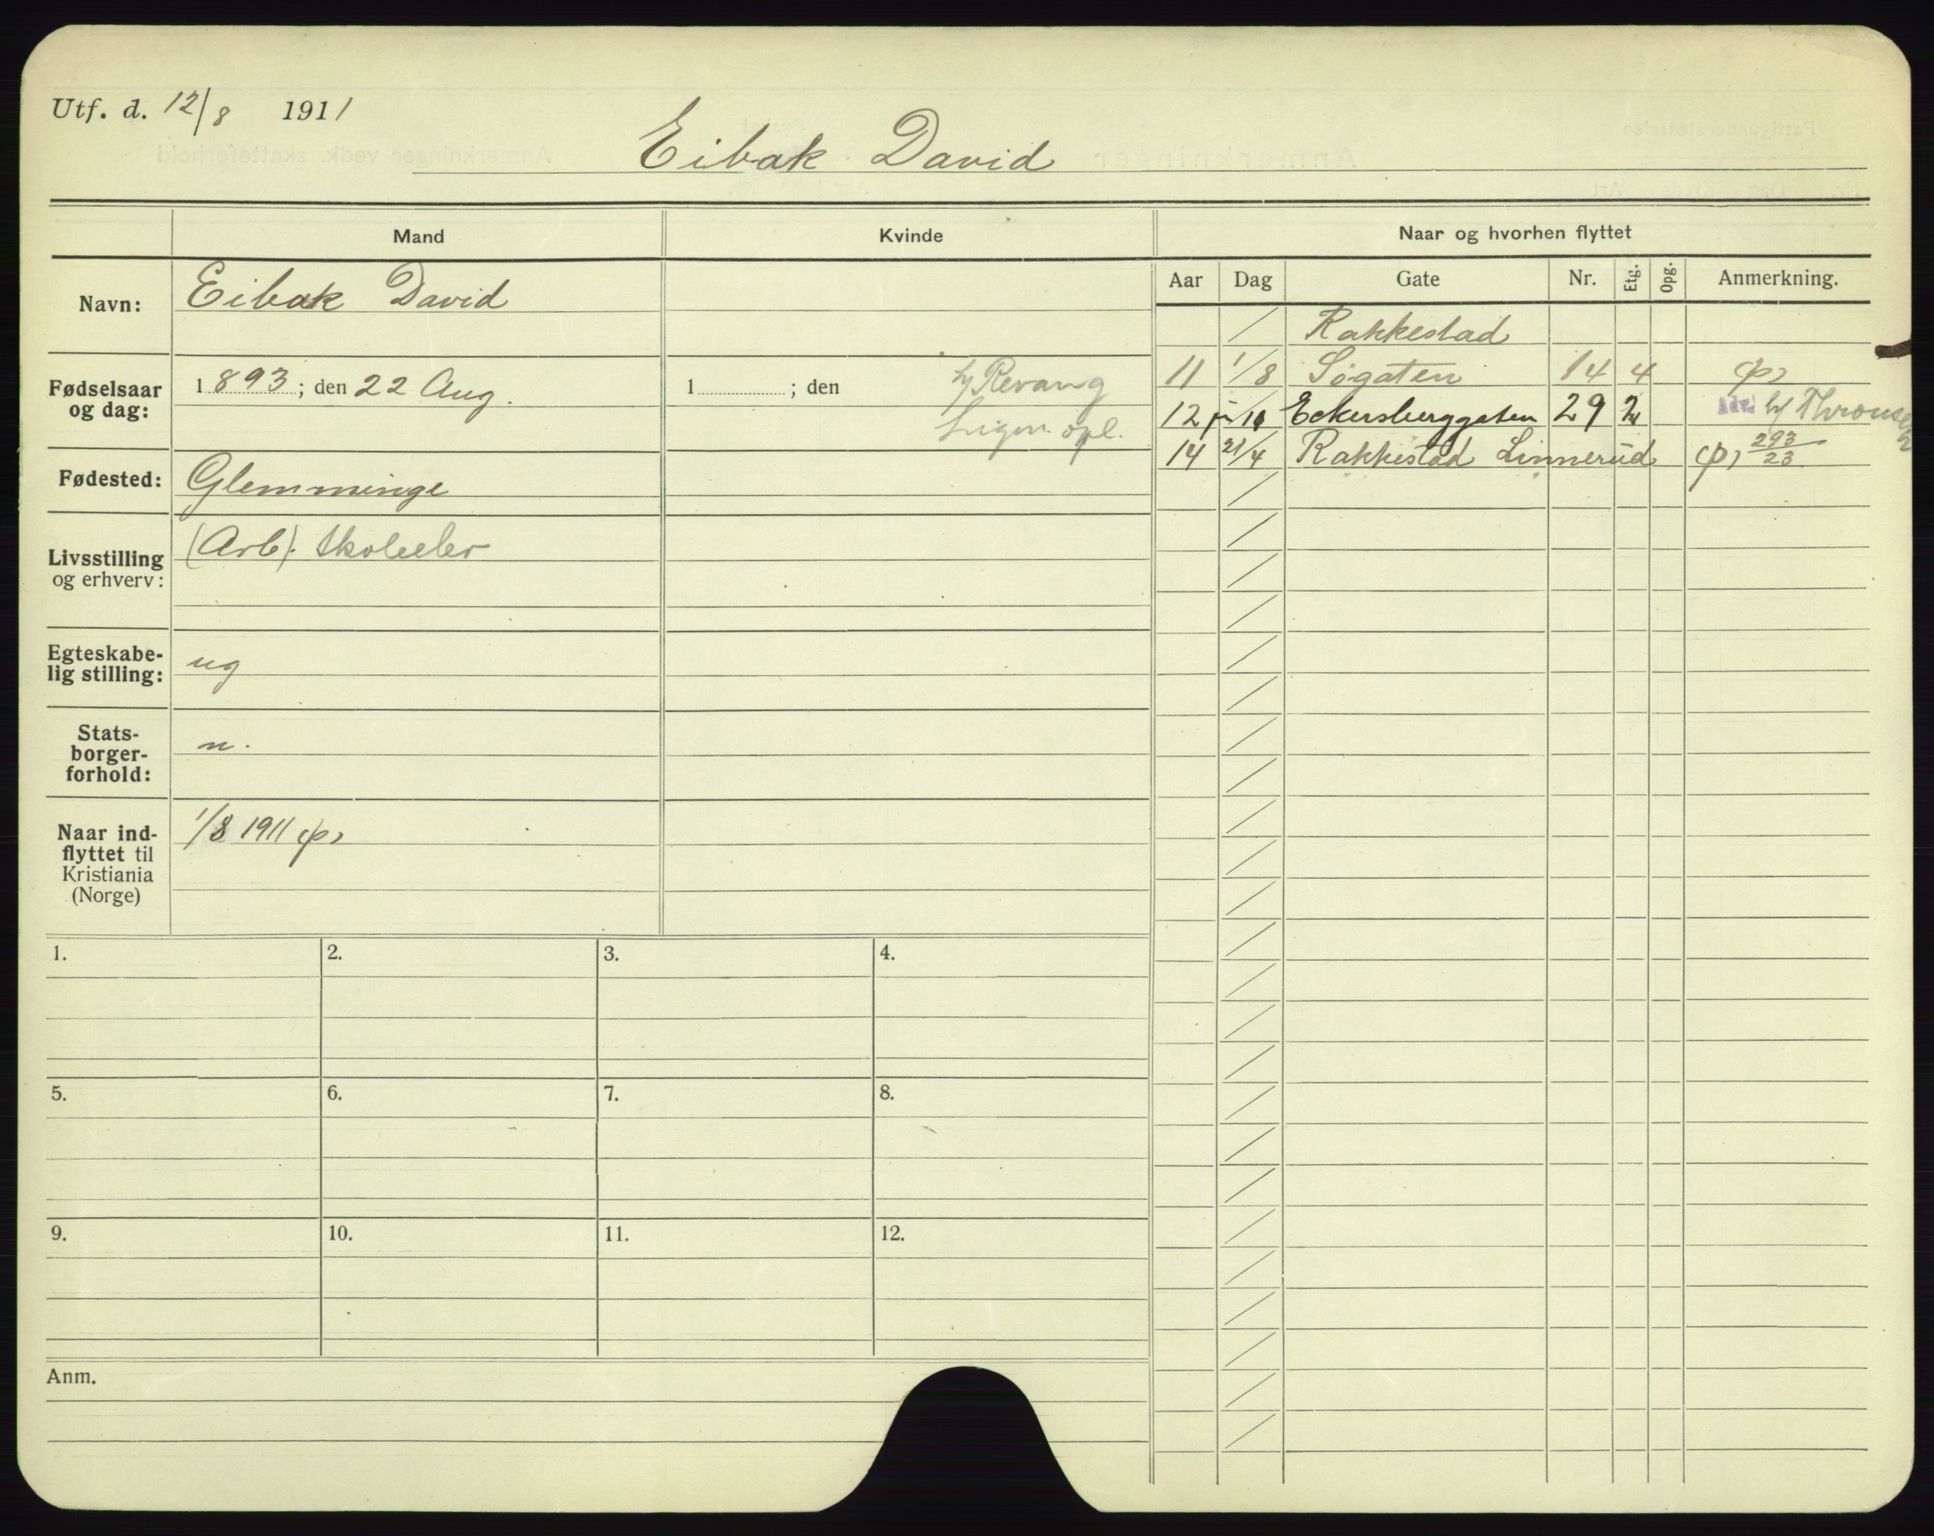 Utf. d. 12/8 1911
Eibak David
Mand
Kvinde
Naar og hvorhen flyttet
Navn: Eibak David
Fødselsaar og dag: 1893; den 22 Aug.
1 ; den
h/ Revang
opl.
Fødested: Glemminge
Livsstilling og erhverv: (Arb). Skoleelev
Egteskabe-
lig stilling: ug
Stats-
borger-
forhold: n.
Naar ind-
flyttet til
Kristiania
(Norge)
1/8 1911
Aar Dag Gate Nr. Etg. Opg. Anmerkning.
/ Rakkestad
11 1/8 Søgaten 14 4
12 Eckersberggaten 29 2 Adv. h/
14 21/4 Rakkestad Linnerud 293/23
1. 2. 3. 4.
5. 6. 7. 8.
9. 10. 11. 12.
Anm.